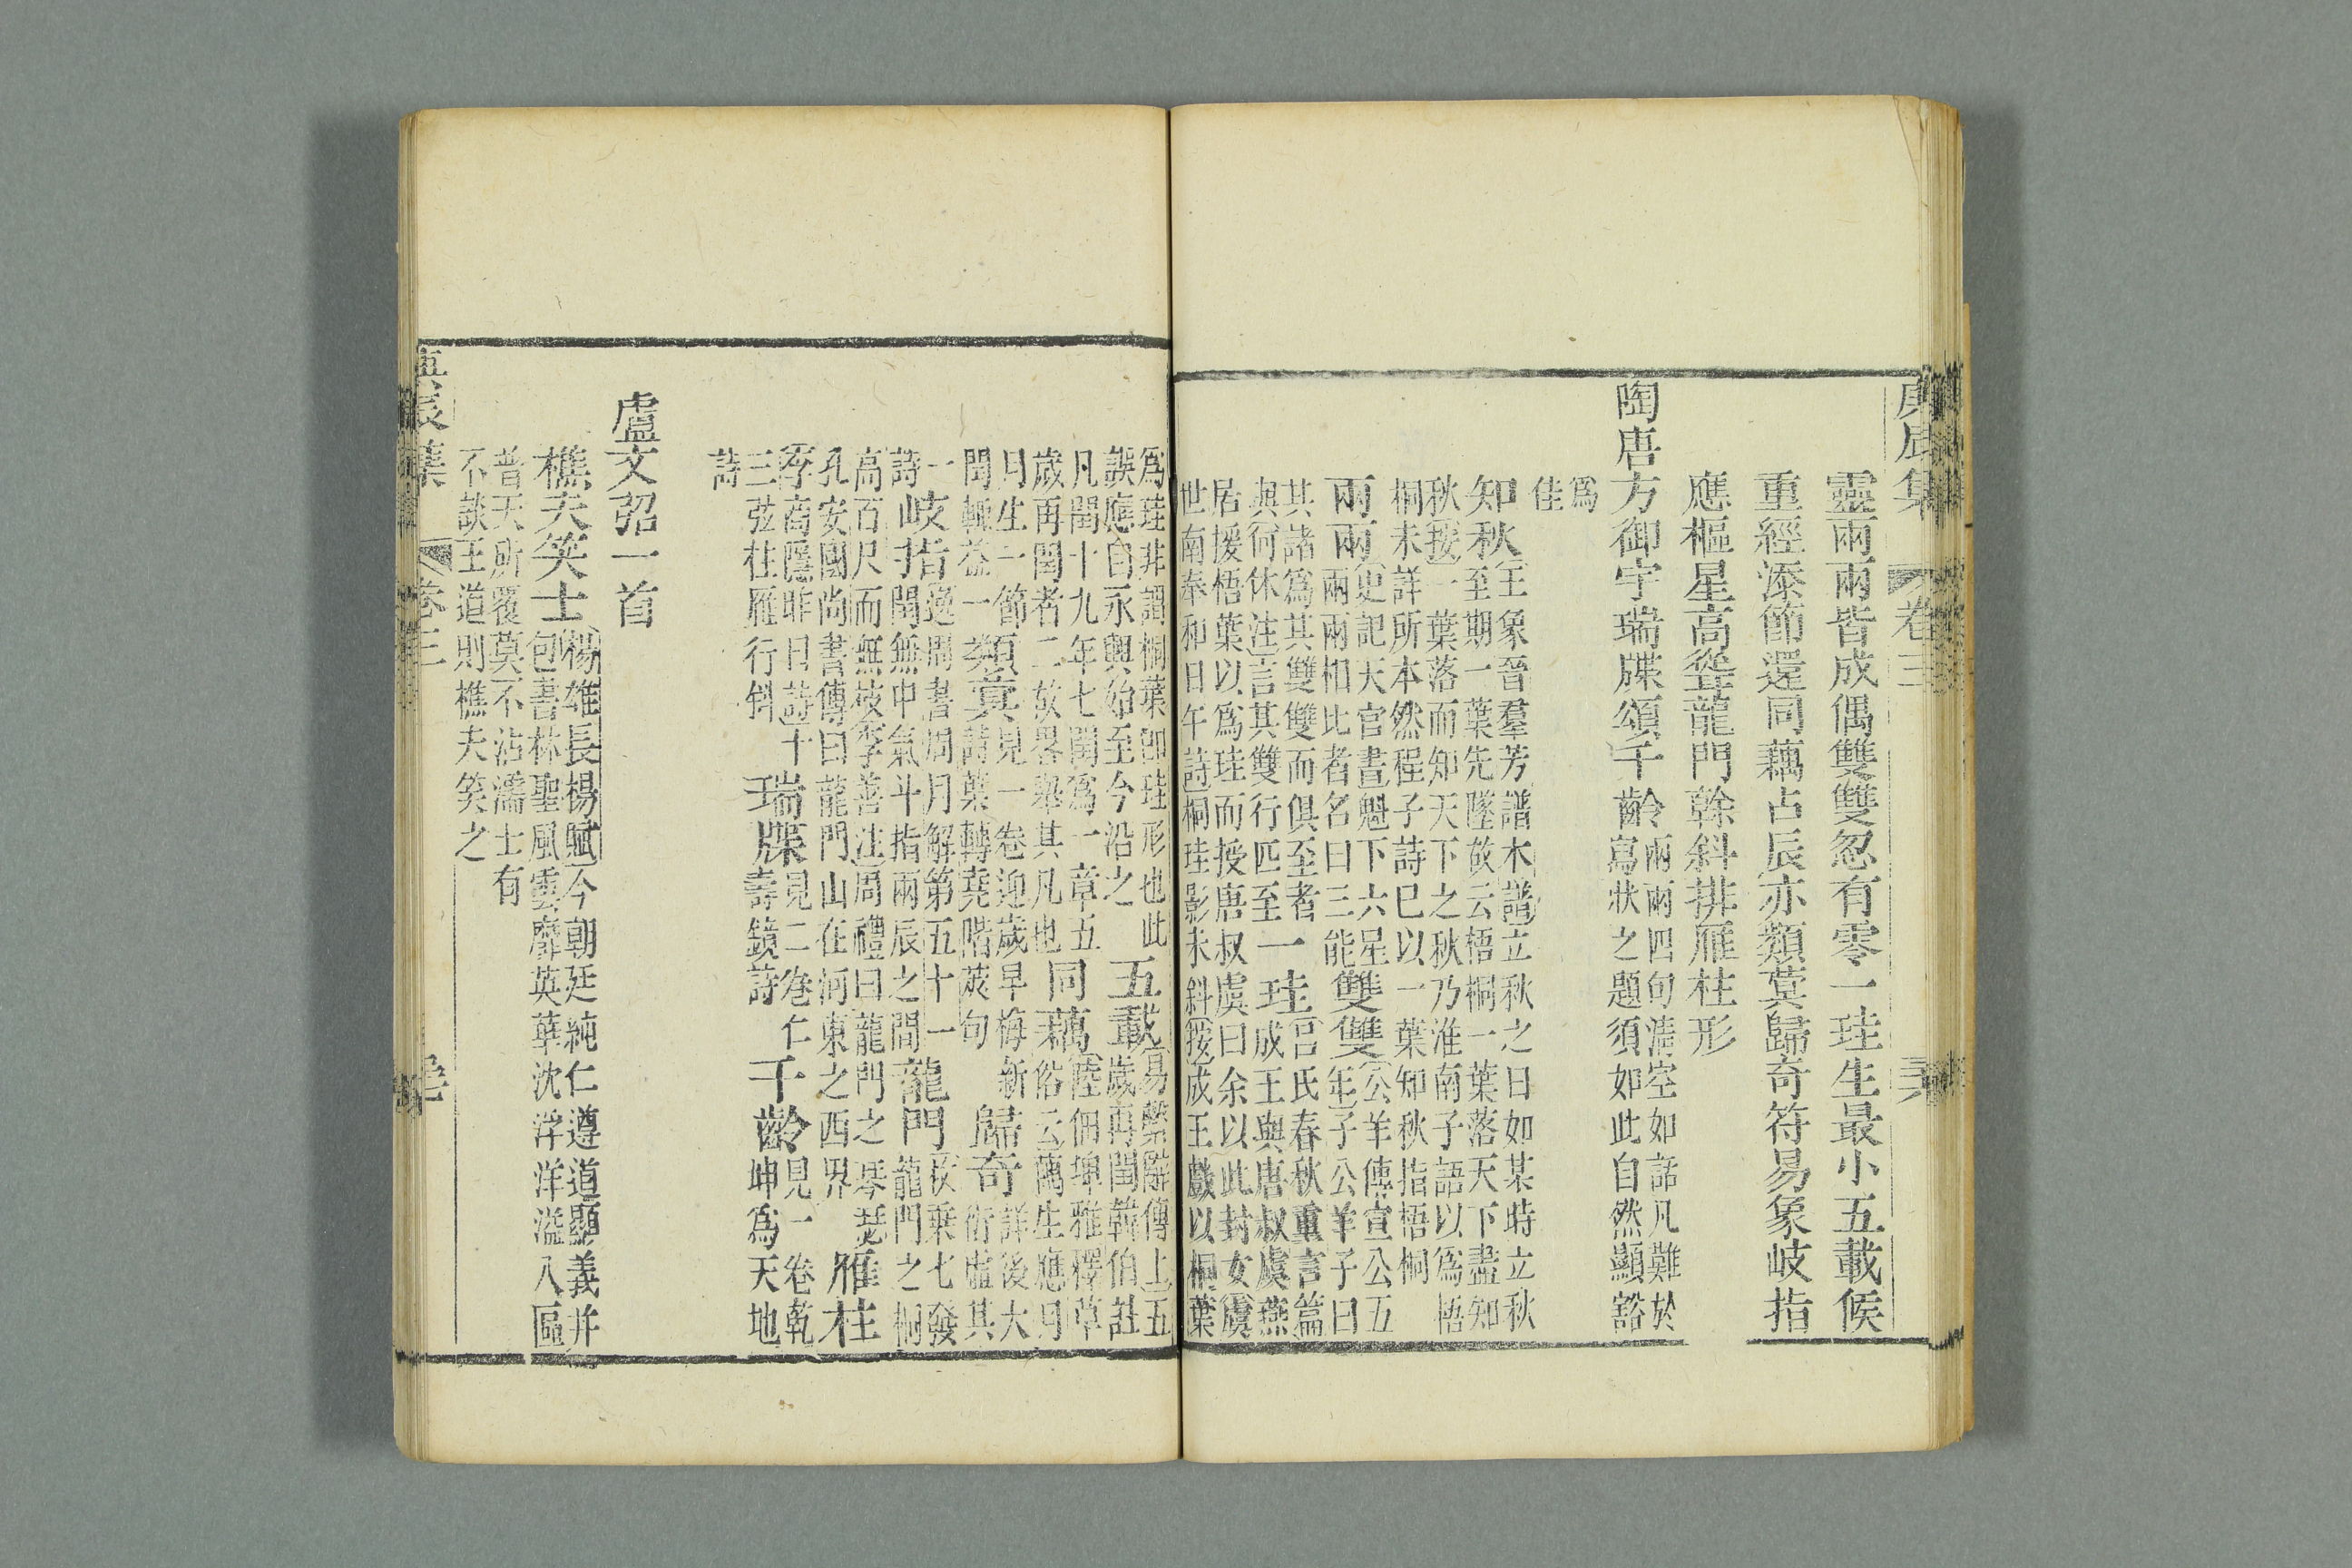 庚辰集 卷三
靈兩兩皆成偶雙雙忽有零一珪生最小五載候
重經添節還同藕占辰亦類蓂歸奇符易象歧指
應樞星高從龍門幹斜排雁柱形
陶唐方御宇瑞牒頌千齡兩兩四句淸空如話凡難於寫狀之題須如此自然顯豁
爲佳
知秋王象晉羣芳譜木譜立秋之日如某時立秋至期一葉先墜故云梧桐一葉落天下盡知
秋按一葉落而知天下之秋乃淮南子語以爲梧桐未詳所本然程子詩已以一葉知秋指梧桐
兩兩史記天官書魁下六星兩兩相比者名曰三能雙雙公羊傳宣公五年子公羊子曰
其諸爲其雙雙而俱至者與何休注言其雙行匹至一珪呂氏春秋重言篇成王與唐叔虞燕
居援梧葉以爲珪而授唐叔虞曰余以此封女虞世南奉和日午詩桐珪影未斜按成王戲以桐葉
爲珪非謂桐葉卽珪形也此誤應自永興始至今沿之五載易繫辭傳上五歲再閏韓伯註
凡閏十九年七閏爲一章五歲再閏者二故畧舉其凡也同藕陸佃埤雅釋草俗云藕生應月
月生一節閏輒益一類蓂見一卷迎歲早梅新詩葉轉堯階莢句歸奇詳後大衍虛其
一詩歧指逸周書周月解第五十一閏無中氣斗指兩辰之間龍門枚乘七發龍門之桐
高百尺而無枝李善注周禮曰龍門之琴瑟孔安國尚書傳曰龍門山在河東之西界雁柱
李商隱昨日詩十三弦柱雁行斜瑞牒見二卷仁壽鏡詩千齡見一卷乾坤爲天地
詩
盧文弨一首
樵夫笑士楊雄長楊賦今朝廷純仁遵道顯義幷包書林聖風雲靡英華沈浮洋溢八區
普天所覆莫不沾濡士有不談王道則樵夫笑之
庚辰集 卷三